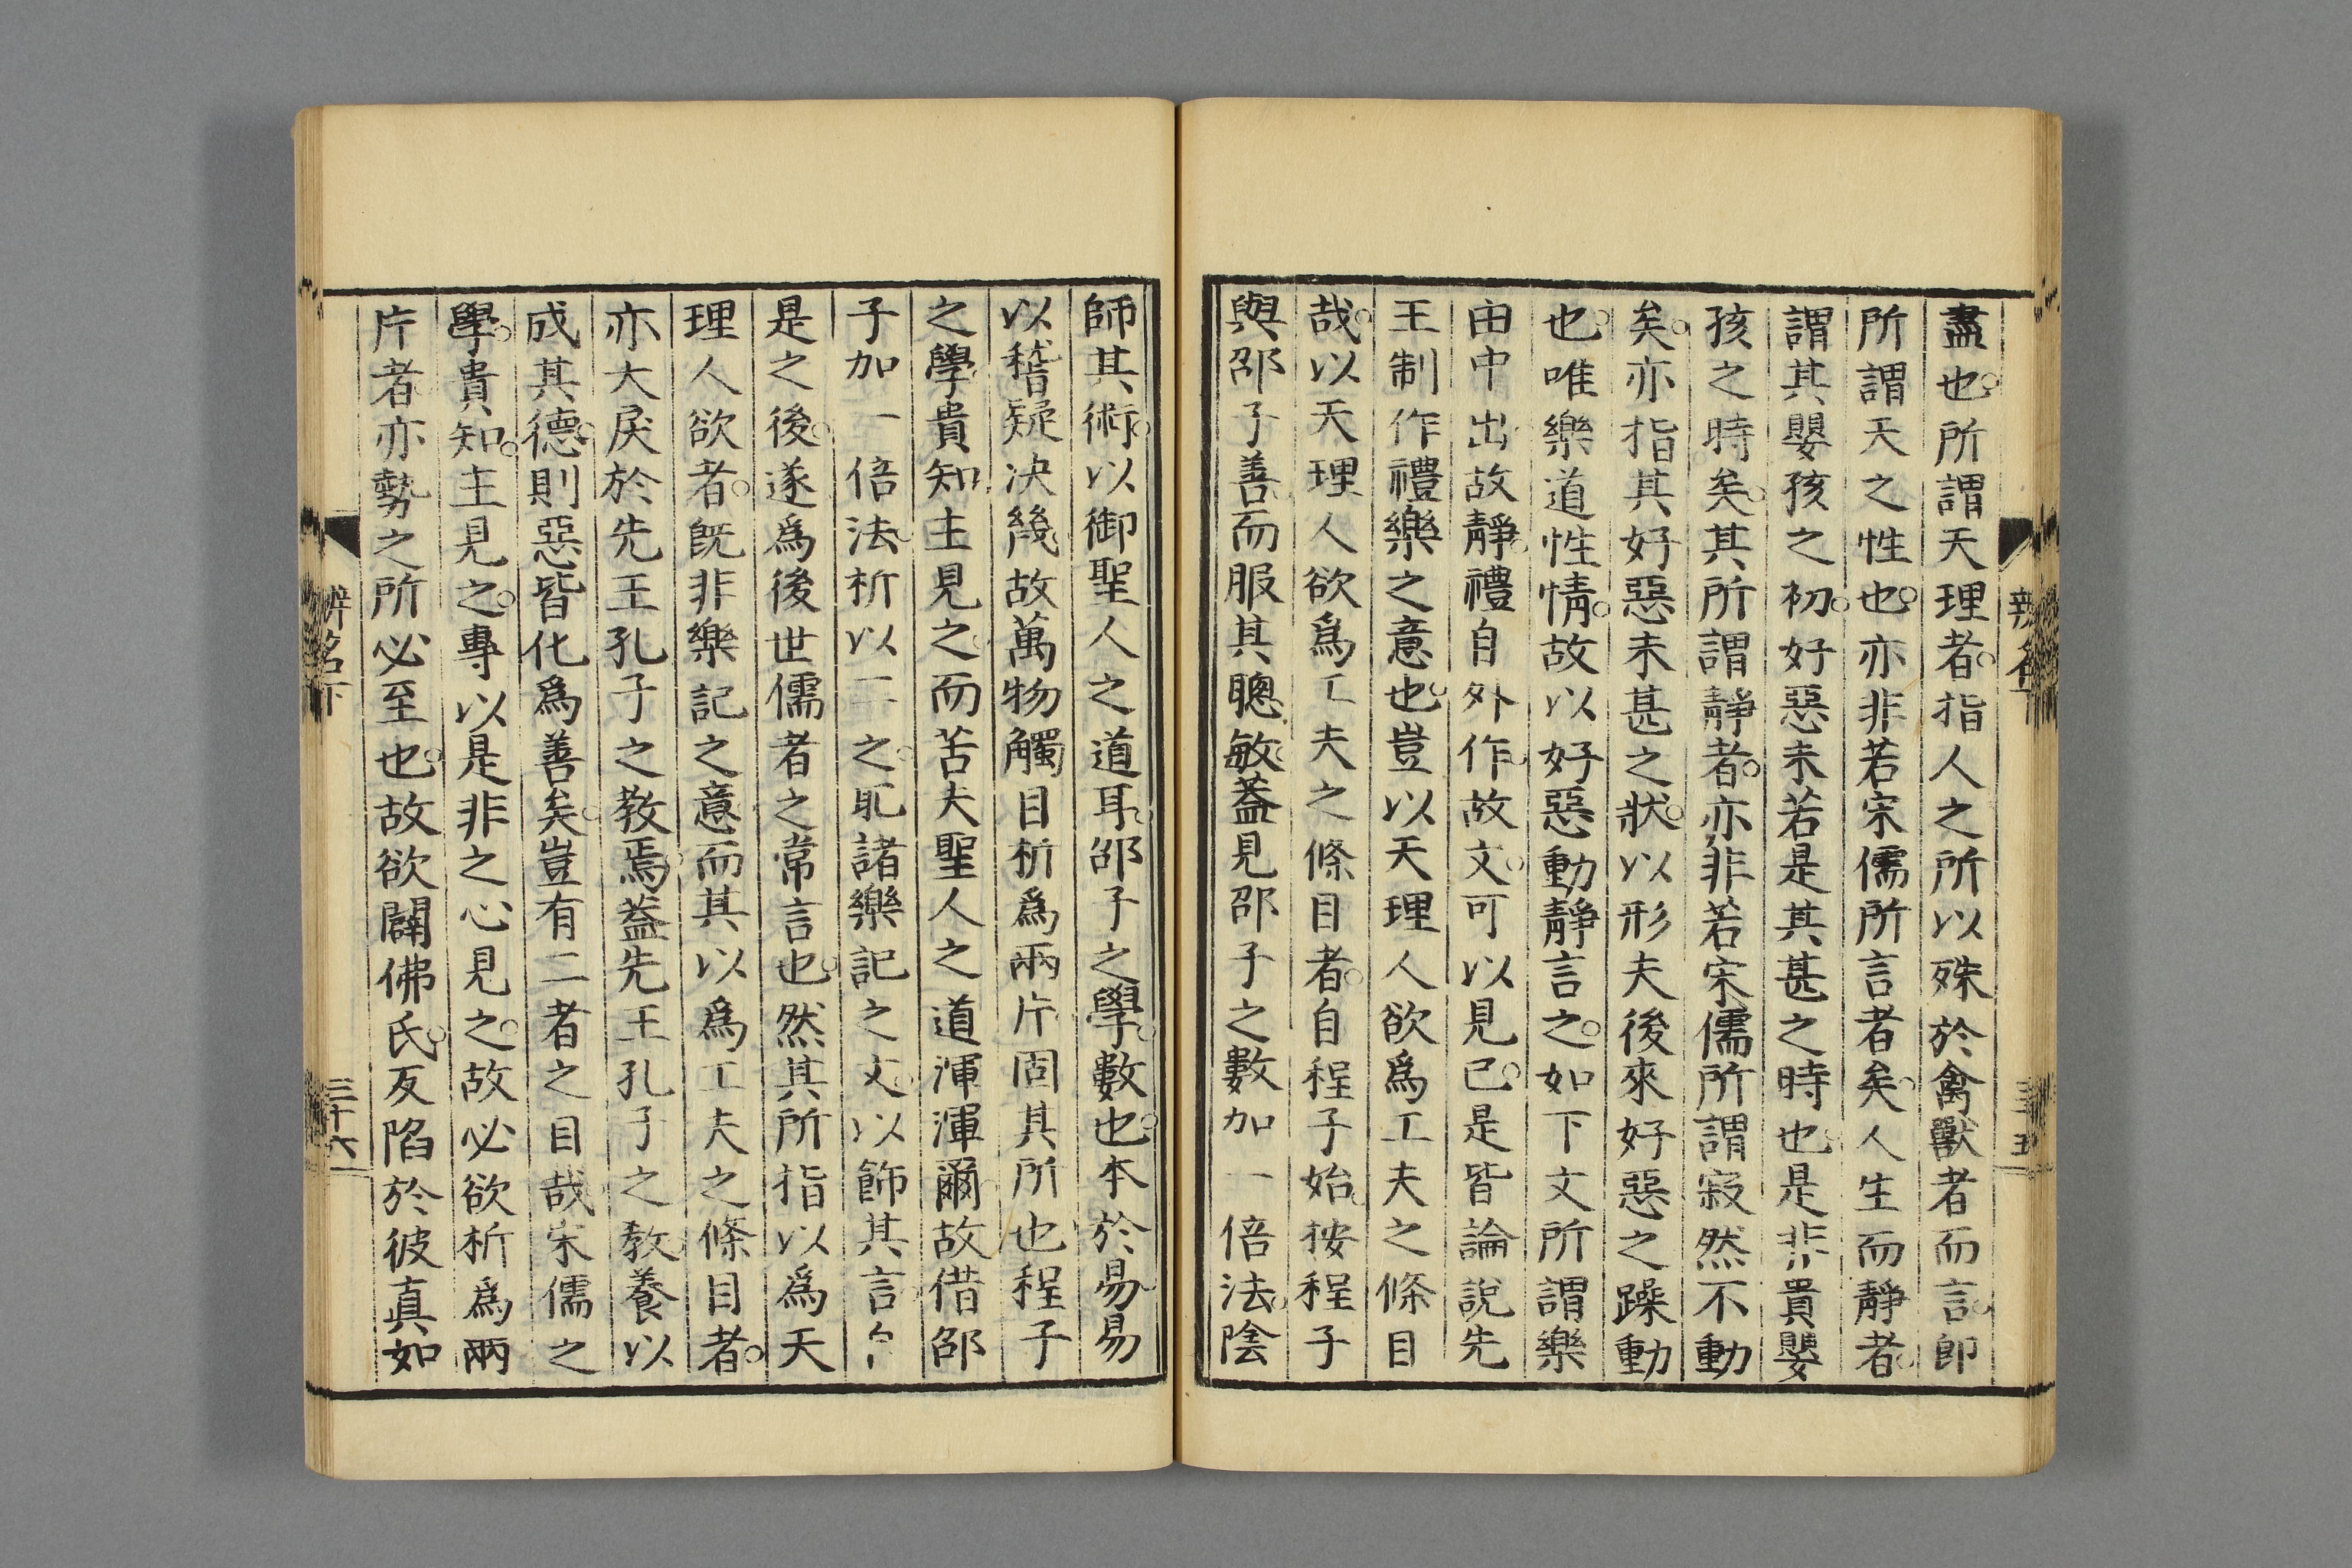 盡也。所謂天理者。指人之所以殊於禽獸者而言。即
所謂天之性也。亦非若宋儒所言者矣。人生而靜者。
謂其嬰孩之初。好惡未若是其甚之時也。是非貴嬰
孩之時矣。其所謂靜者。亦非若宋儒所謂寂然不動
矣。亦指其好惡未甚之狀。以形夫後來好惡之躁動
也。唯樂道性情。故以好惡動靜言之。如下文所謂樂
由中出故靜。禮自外作。故文。可以見已。是皆論說先
王制作禮樂之意也。豈以天理人欲爲工夫之條目
哉。以天理人欲爲工夫之條目者。自程子始。按程子
與邵子善。而服其聰敏。蓋見邵子之數加一倍法。陰
辨名
師其術。以御聖人之道耳。邵子之學。數也。本於易。易
以稽疑決幾。故萬物觸目析爲兩片固其所也程子
之學貴知。主見之。而苦夫聖人之道渾渾爾。故借邵
子加一倍法。析以二之。取諸樂記之文。以飾其言。
是之後。遂爲後世儒者之常言也。然其所指以爲天
理人欲者。既非樂記之意而其以爲工夫之條目者。
亦大戾於先王孔子之教焉。蓋先王孔子之教。養以
成其德。則惡皆化爲善矣。豈有二者之目哉宋儒之
學。貴知。主見之。專以是非之心見之。故必欲析爲兩
片者亦勢之所必至也。故欲闢佛氏。反陷於彼真如
辨名下
三十六